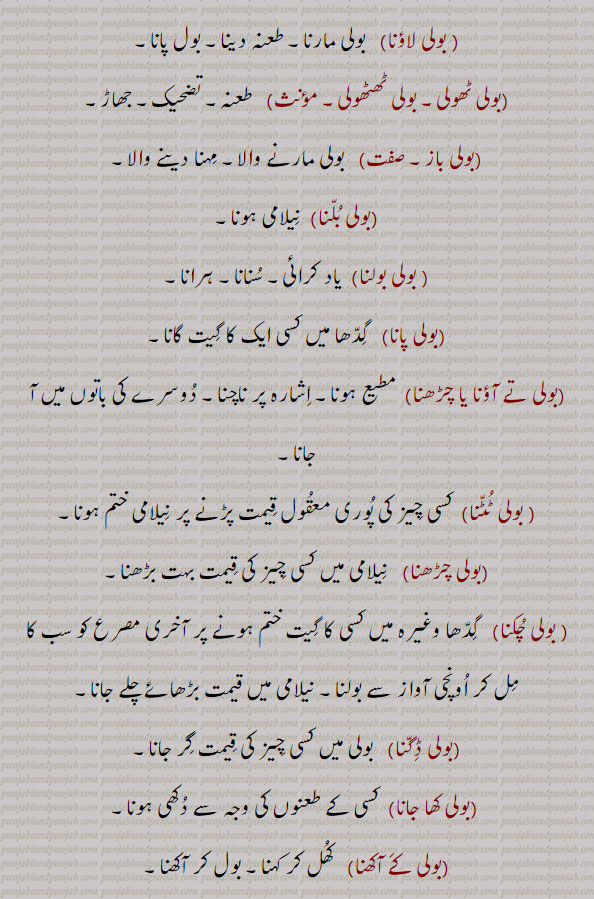 ( بولی لاؤنا) بولی مارنا ۔ طعنہ دینا ۔ بول پانا ۔
(بولی ٹھولی ۔ بولی ٹھٹھولی ۔ مؤنث) طعنہ ۔ تضحیک ۔ جھاڑ ۔
(بولی باز ۔ صفت) بولی مارنے والا ۔ مِہنا دینے والا ۔
(بولی بُلّنا) نِیلامی ہونا ۔
( بولی بولنا) یاد کرائی ۔ سُنانا ۔ ہرانا ۔
(بولی پانا) گِدّھا میں کسی ایک کا گیت گانا ۔
(بولی تے آؤنا یا چڑھنا) مطیع ہونا ۔ اِشارہ پر ناچنا ۔ دُوسرے کی باتوں میں آ
جانا ۔
( بولی ٹُٹّنا) کسی چیز کی پُوری معقُول قِیمت پڑنے پر نِیلامی ختم ہونا ۔
(بولی چڑھنا) نِیلامی میں کسی چیز کی قِیمت بہت بڑھنا ۔
( بولی چُکنا) گِدّھا وغیرہ میں کسی کا گیت ختم ہونے پر آخری مصرع کو سب کا
مِل کر اُونچی آواز سے بولنا ۔ نیلامی میں قیمت بڑھائے چلے جانا ۔
(بولی ڈِگّنا) بولی میں کسی چیز کی قِیمت گِر جانا ۔
(بولی کھا جانا) کسی کے طعنوں کی وجہ سے دُکھی ہونا ۔
(بولی کےَ آکھنا) کُھل کر کہنا ۔ بول کر آکھنا ۔